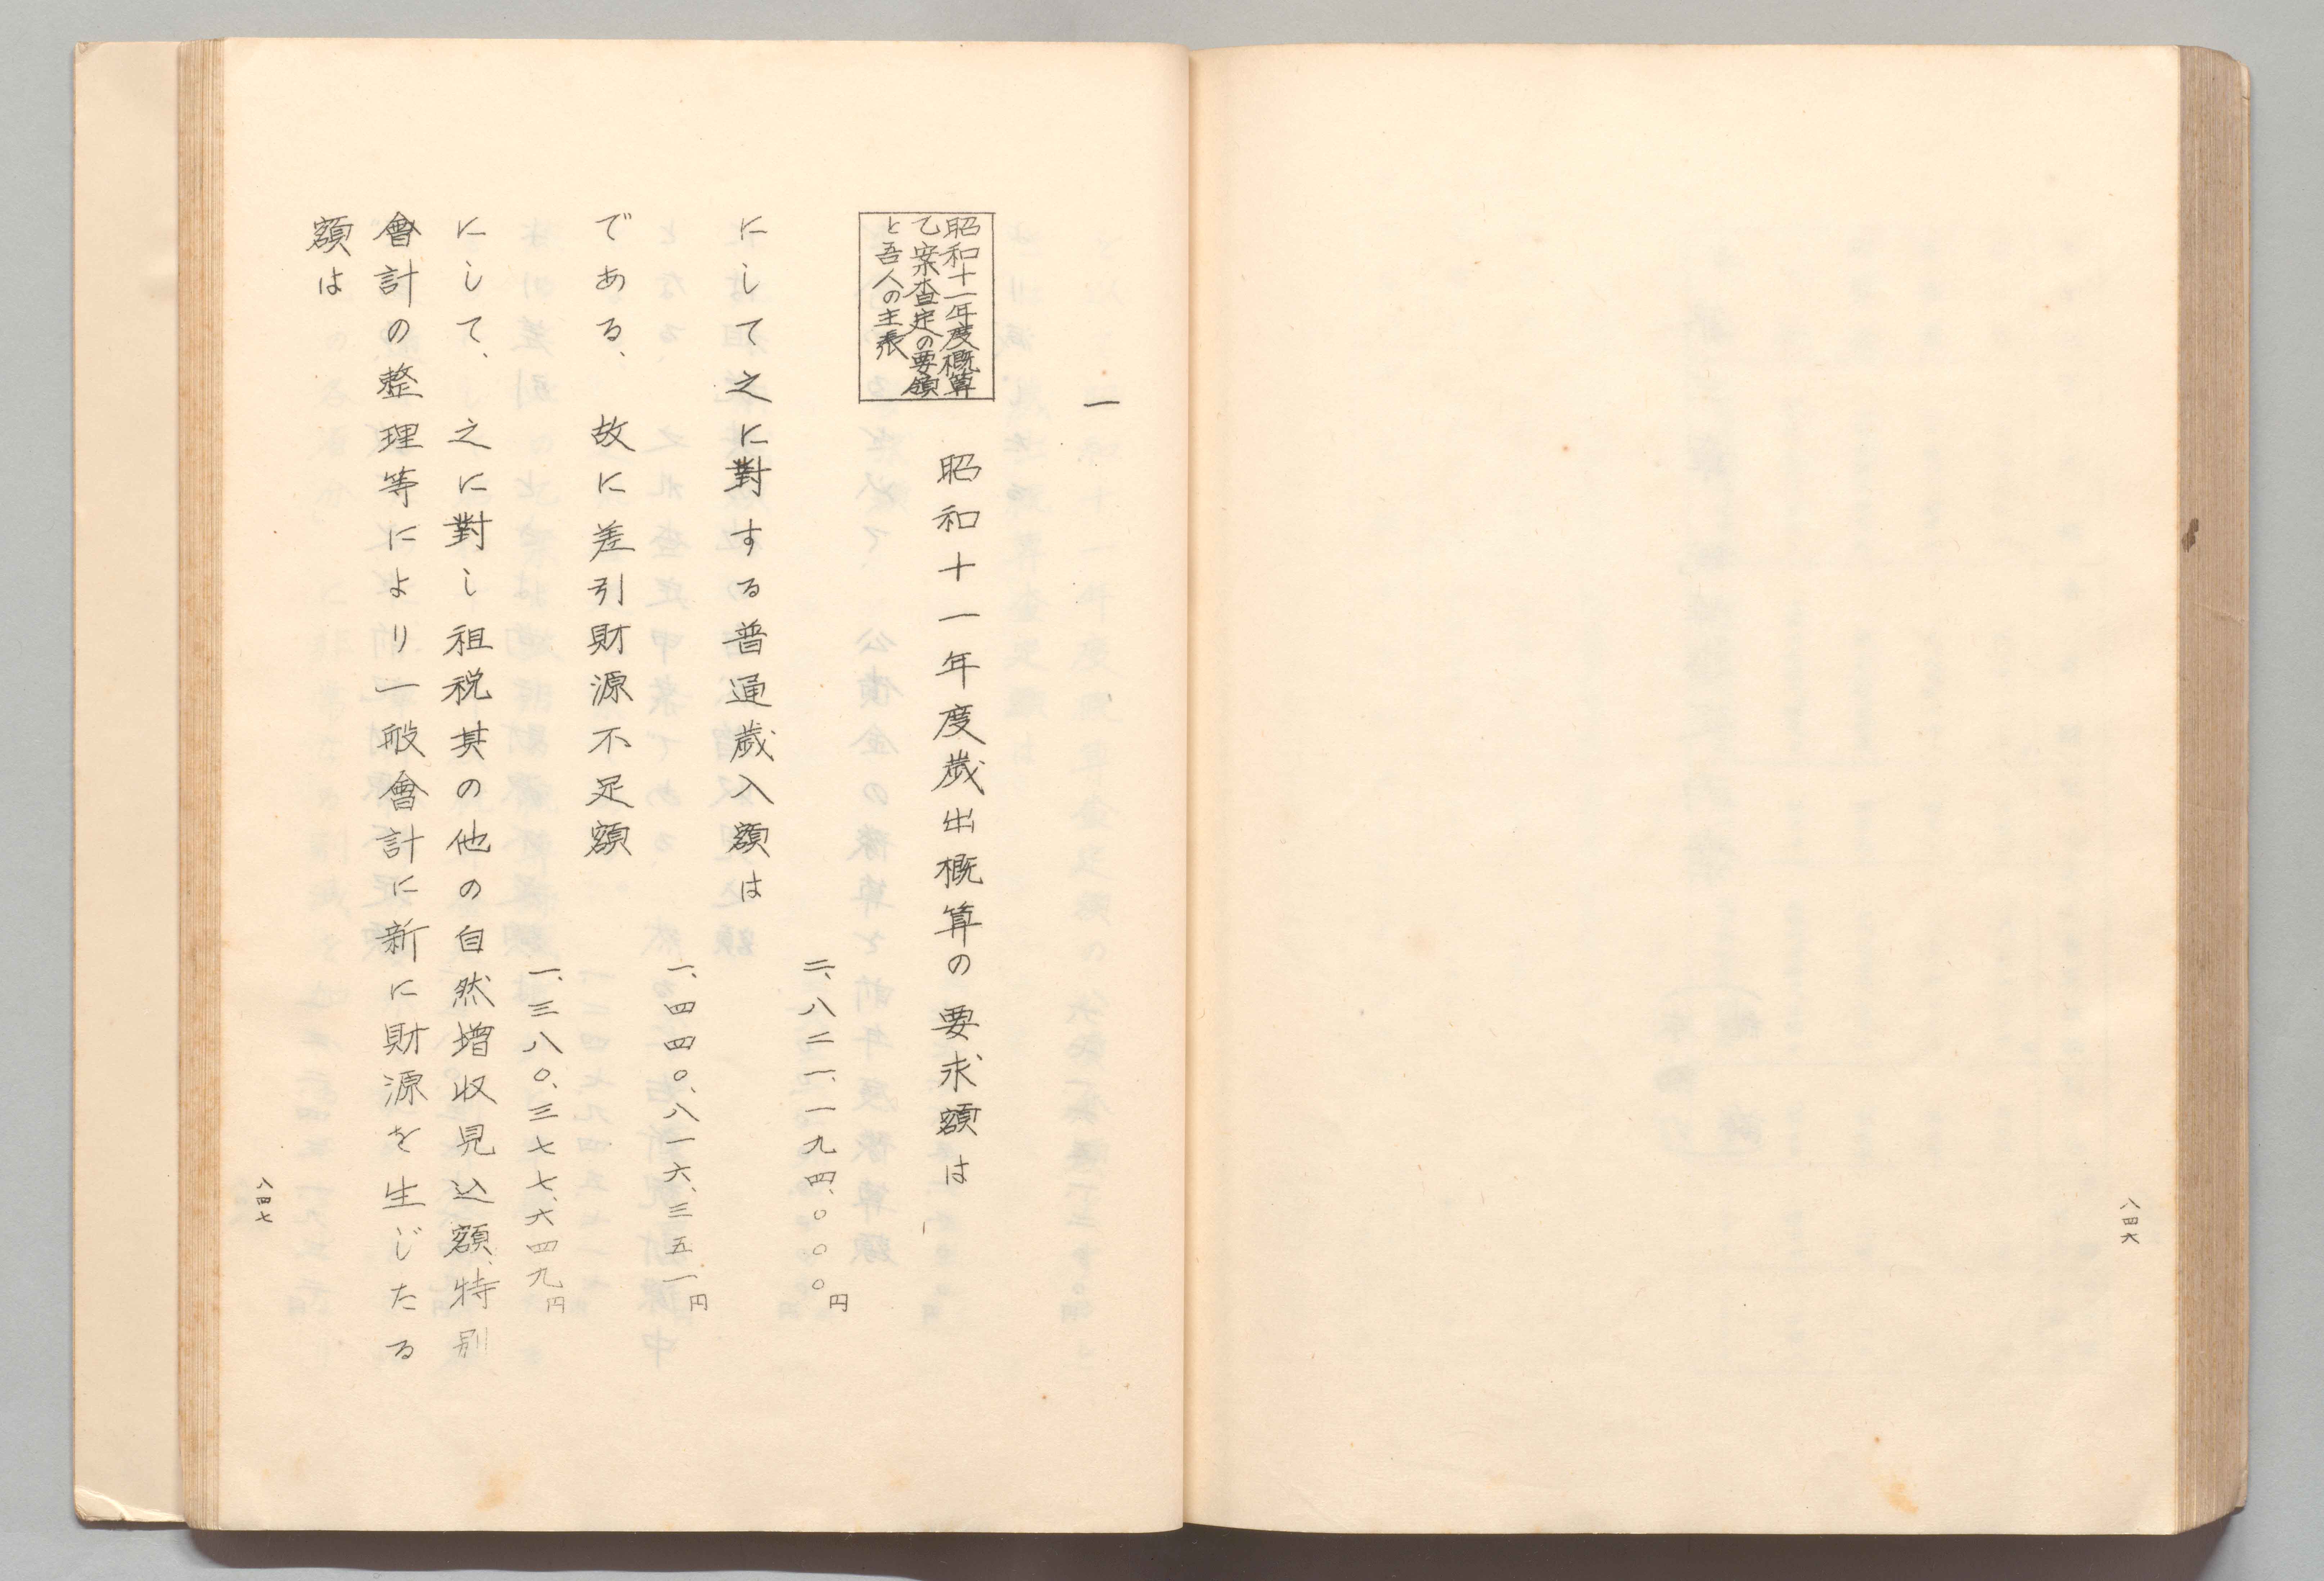 八四六
一
昭和十一年度概算
乙案査定の要領
と吾人の主張
昭和十一年度歳出概算の要求額は
二、八二一、一九四、〇〇〇円
にして之に對する普通歳入額は
一、四四〇、八一六、三五一円
である、故に差引財源不足額
一、三八〇、三七七、六四九円
にして、之に對し祖税其の他の自然増収見込額、特別
會計の整理等により一般會計に新に財源を生じたる
額は
八四七